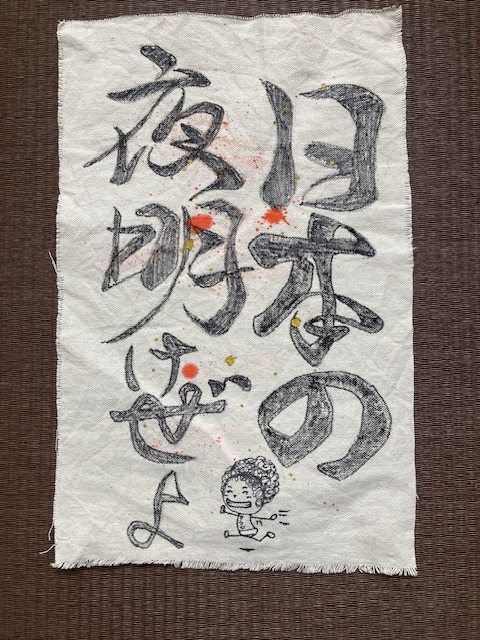 日本の
夜明けぜよ